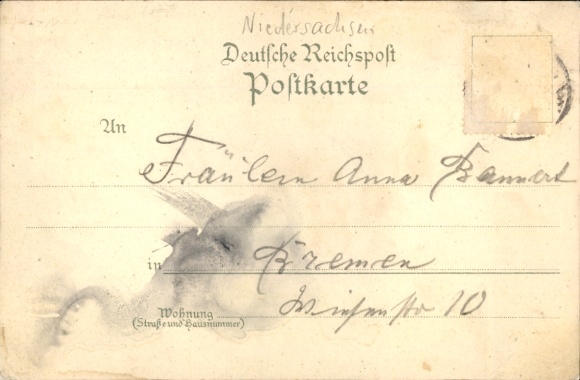 Niedersachsen
Deutsche Reichspost
Postkarte
An
Fräulein Anna Bannert
in Bremen
Wiesenstr 10
Wohnung
(Straße und Hausnummer)